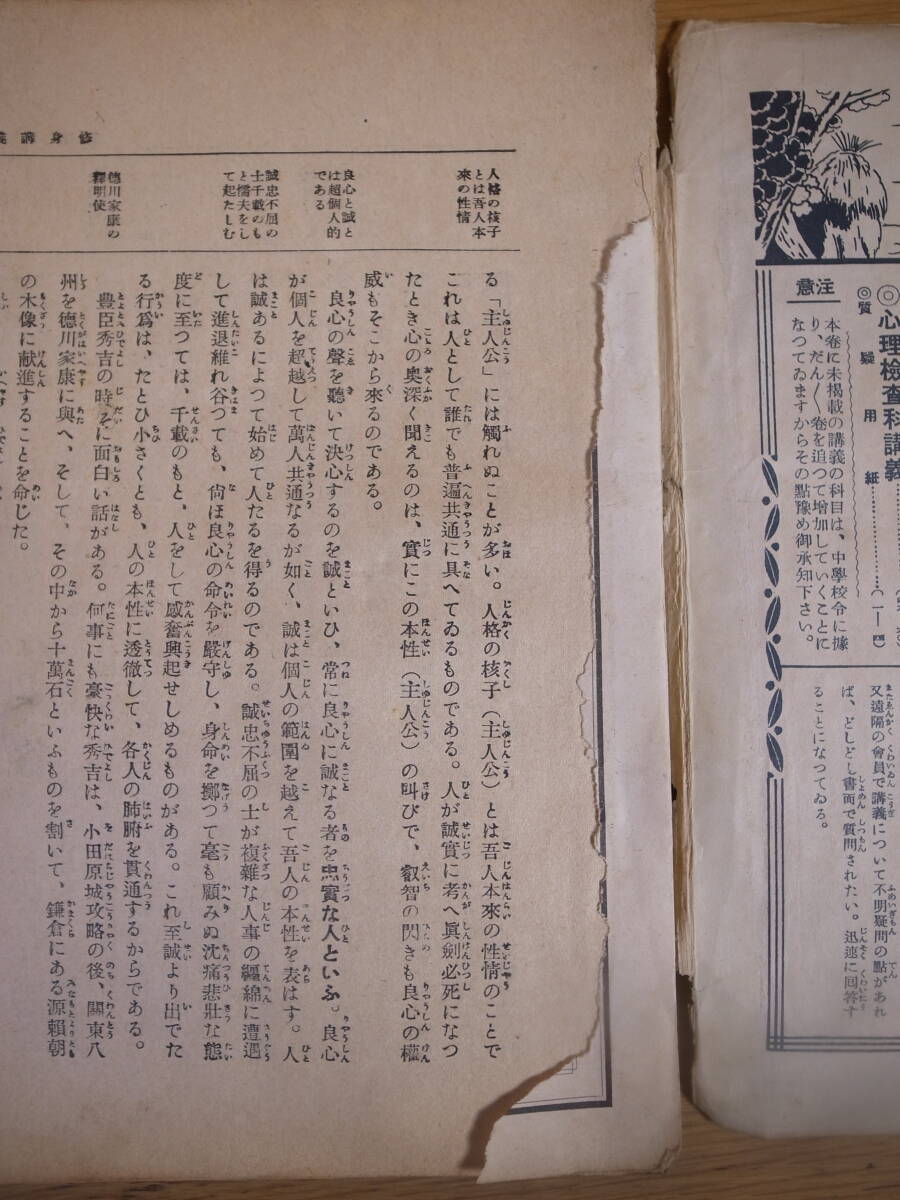 修身講義
人格の核子
とは吾人本
來の性情
良心と誠と
は超個人的
である
誠忠不屈の
士千載のも
と懦夫をし
て起たしむ
德川家康の
釋明使
る「主人公」には觸れぬことが多い。人格の核子（主人公）とは吾人本來の性情のことで
これは人として誰でも普遍共通に具へてゐるものである。人が誠實に考へ眞劍必死になつ
たとき心の奧深く聞えるのは、實にこの本性（主人公）の叫びで、叡智の閃きも良心の權
威もそこから來るのである。
良心の聲を聽いて決心するのを誠といひ、常に良心に誠なる者を忠實な人といふ。良心
が個人を超越して萬人共通なるが如く、誠は個人の範圍を越えて吾人の本性を表はす。人
は誠あるによつて始めて人たるを得るのである。誠忠不屈の士が複雜な人事の纏綿に遭遇
して進退維れ谷つても、尙ほ良心の命令を嚴守し、身命を擲つて毫も顧みぬ沈痛悲壯な態
度に至つては、千載のもと、人をして感奮興起せしめるものがある。これ至誠より出でた
る行爲は、たとひ小さくとも、人の本性に透徹して、各人の肺腑を貫通するからである。
豐臣秀吉の時に面白い話がある。何事にも豪快な秀吉は、小田原城攻略の後、關東八
州を德川家康に與へ、そして、その中から十萬石といふものを割いて、鎌倉にある源賴朝
の木像に献進することを命じた。
◎心理檢查科講義
◎質疑用紙
（一—四）
注意
本卷に未掲載の講義の科目は、中學校令に據
り、だん〱卷を追つて增加していくことに
なつてゐますからその點豫め御承知下さい。
又遠隔の會員で講義について不明疑問の點があれ
ば、どしどし書面で質問されたい。迅速に回答す
ることになつてゐる。